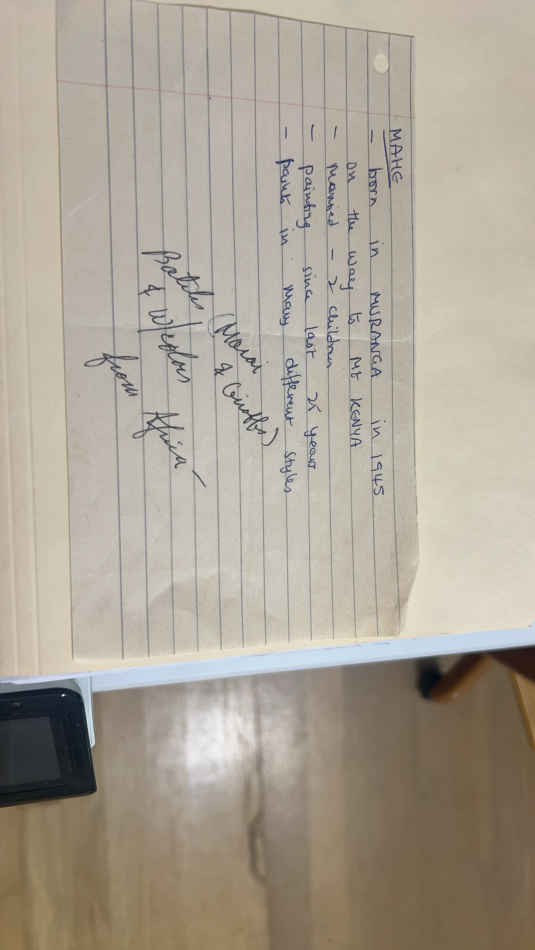 MAHE
- born in MURANGA in 1945
on the way to Mt KENYA
- married - 2 children
- painting since last 25 years
- paints in many different styles
(Masai
& Giraffes)
Batiks
& W/colors Africa -
from